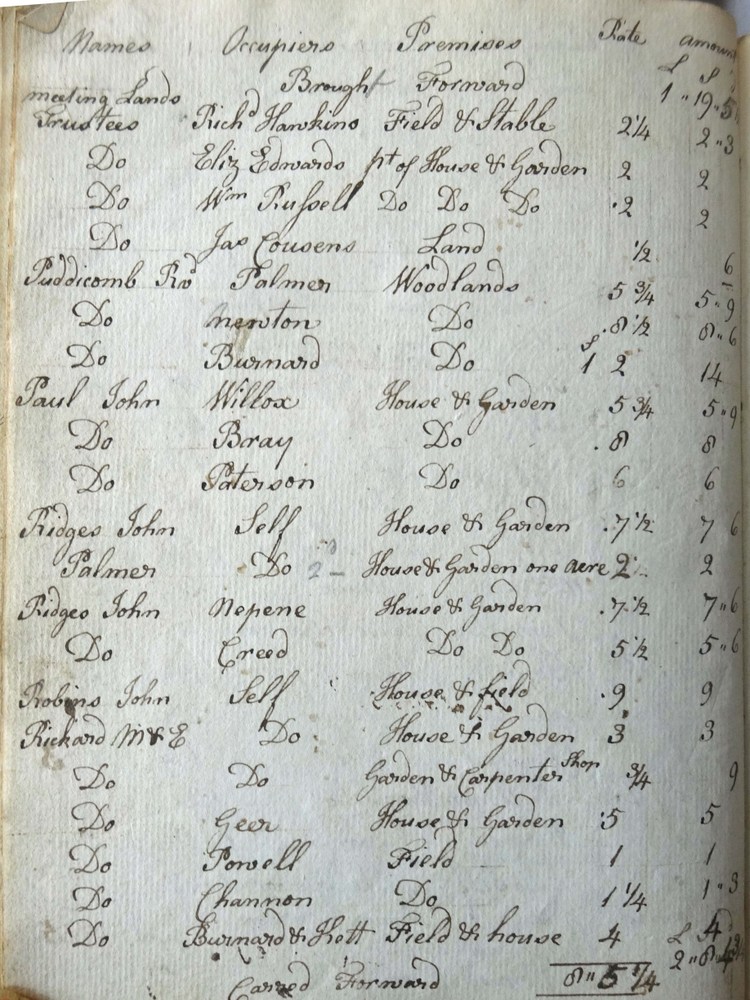 Names Occupiers Premises Rate amount
Brought Forward £ s
1 " 19 " 5
meeting Lands
Trustees Richd Hawkins Field & Stable 2 1/4 2 " 3
Do Eliz Edwards pt of House & Garden 2 2
Do Wm Russell Do Do Do 2 2
Do Jas Cousens Land 1/2 6
Puddicomb Rd Palmer Woodlands 5 3/4 5 " 9
Do Newton Do 8 1/2 8 " 6
Do Burnard Do 1 2 14
Paul John Willox House & Garden 5 3/4 5 " 9
Do Bray Do 8 8
Do Paterson Do 6 6
Ridges John Self House & Garden 7 1/2 7 6
Palmer Do 2 House & Garden one acre 2 2
Ridges John Nepene House & Garden 7 1/2 7 " 6
Do Creed Do Do 5 1/2 5 " 6
Robins John Self House & field 9 9
Rickard M & E Do House & Garden 3 3
Do Do Garden & Carpenter Shop 3/4 9
Do Geer House & Garden 5 5
Do Powell Field 1 1
Do Channon Do 1 1/4 1 " 3
Do Burnard & Kett Field & house 4 4
Carred Forward 8 " 5 1/4 £ 2 " 8 " 4